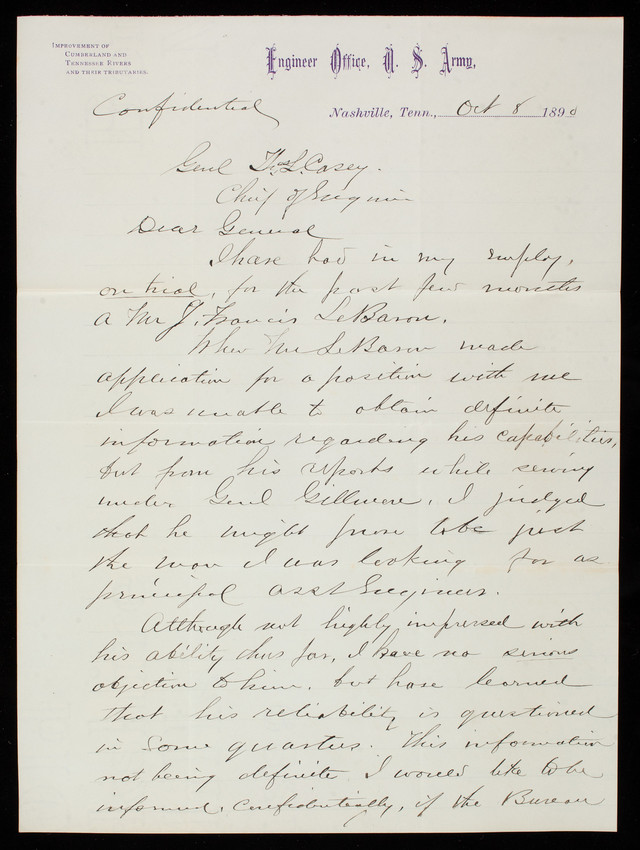 IMPROVEMENT OF
CUMBERLAND AND
TENNESSEE RIVERS
AND THEIR TRIBUTARIES.
Engineer Office, U. S. Army,
Confidential
Nashville, Tenn., Oct 8 1890
Genl Th. L. Casey.
Chief of Engineers
Dear General
I have had in my employ,
on trial, for the past few months
a Mr J. Francis LeBaron.
When Mr LeBaron made
application for a position with me
I was unable to obtain definite
information regarding his capabilities,
but from his reports while serving
under Genl Gillmore, I judged
that he might prove to be just
the man I was looking for as
principal asst Engineer.
Although not highly impressed with
his ability thus far, I have no serious
objection to him, but have learned
that his reliability is questioned
in some quarters. This information
not being definite I would like to be
informed, confidentially, if the Bureau